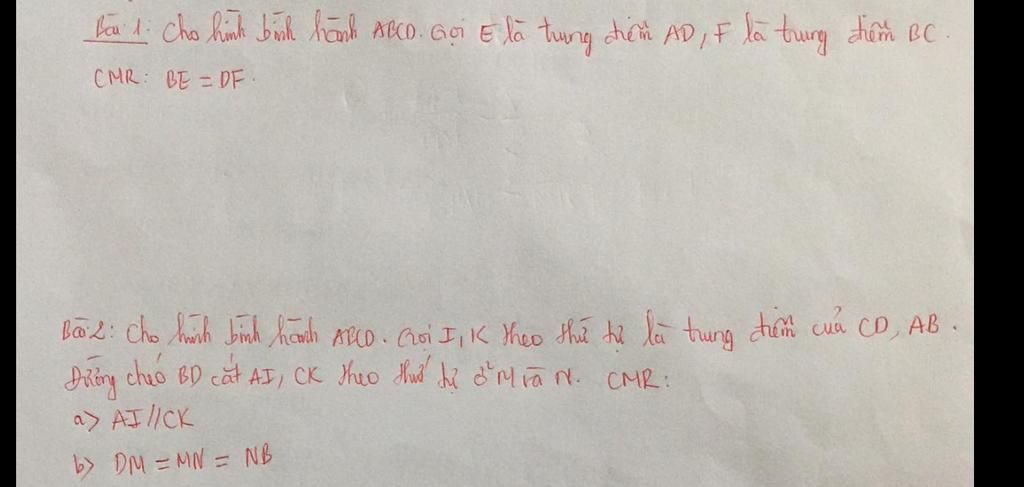 Bài 1. Cho hình bình hành ABCD. Gọi E là trung điểm AD, F là trung điểm BC.
CMR: BE = DF.
Bài 2: Cho hình bình hành ABCD. Gọi I, K theo thứ tự là trung điểm của CD, AB.
Đường chéo BD cắt AI, CK theo thứ tự ở M và N. CMR:
a> AI//CK
b> DM = MN = NB